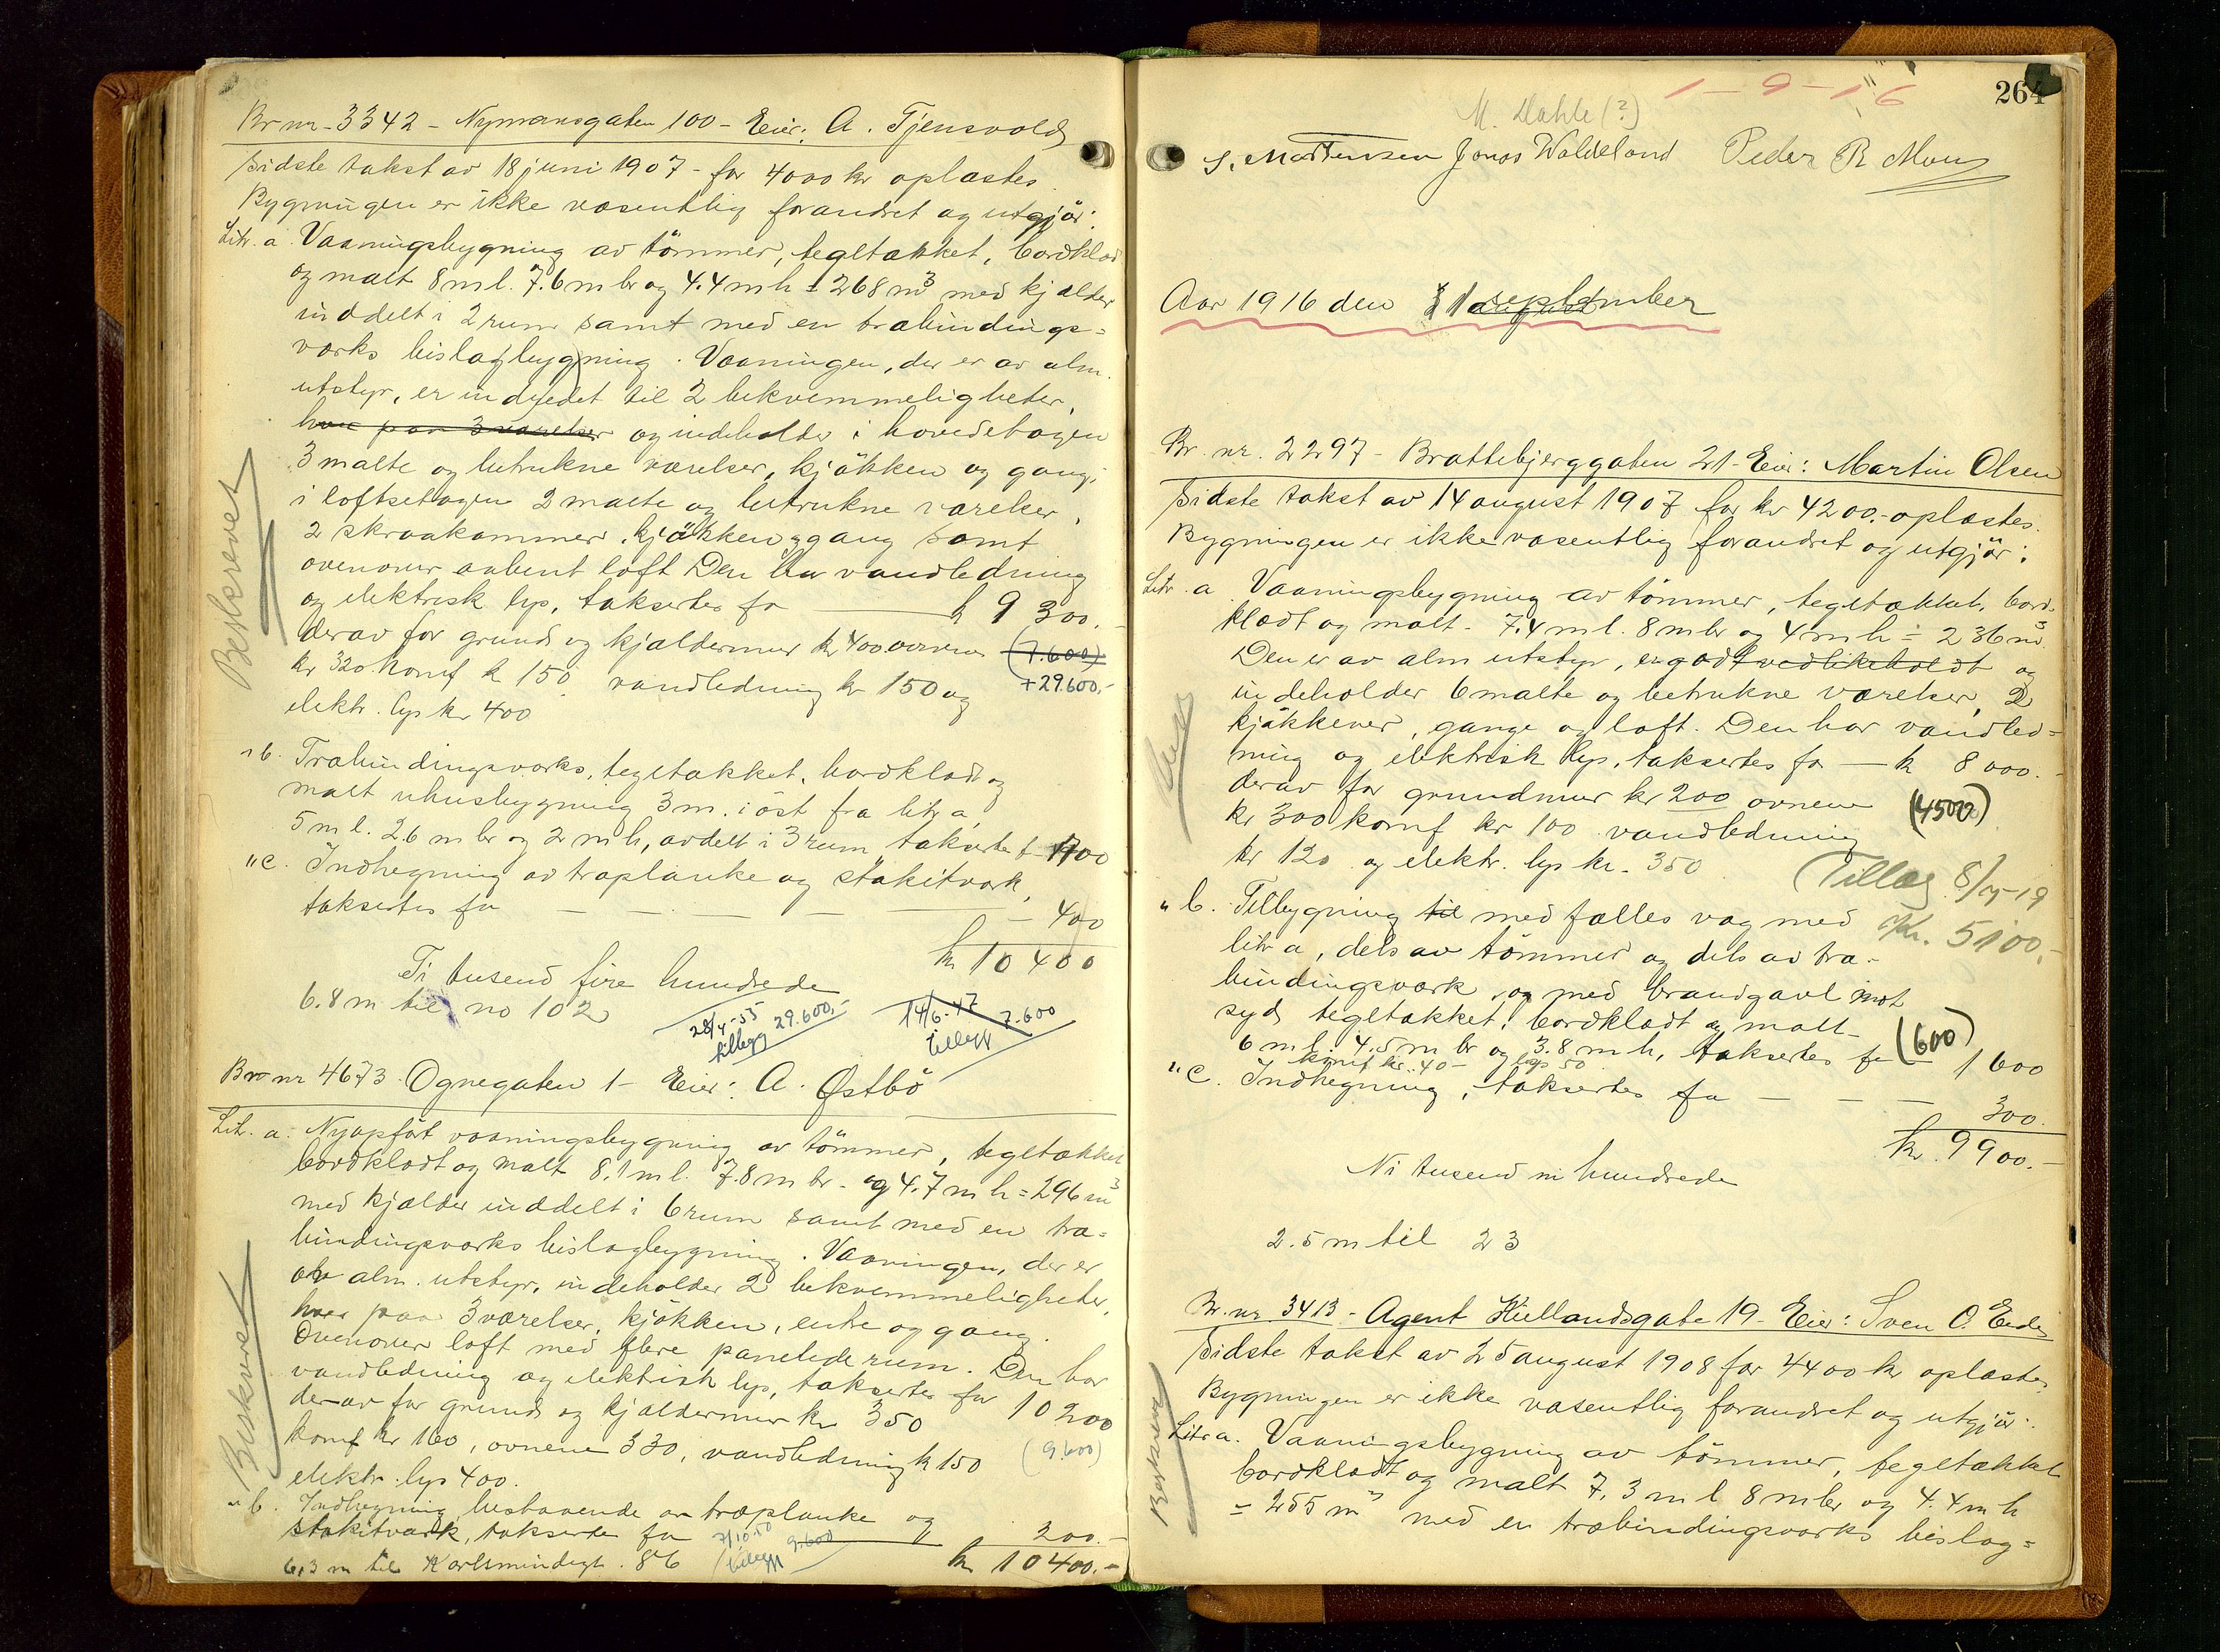 Br nr - 3342 - Nymansgaten 100 - Eier: A. Tjensvold
Sidste takst av 18 juni 1907 - for 4000 kr oplæstes.
Bygningen er ikke væsentlig forandret og utgjør:
Litr. a. Vaaningsbygning av tömmer, tegltækket, bordklæd
og malt 8 m l. 7.6 m br og 4.4 m h = 268 m³ med kjælder
inddelt i 2 rum samt med en træbindings=
verks bislagbygning. Vaaningen, der er av alm.
utstyr, er indredet til 2 bekvemmeligheter,
hver paa 3 værelser og indeholder i hovedetagen
3 malte og betrukne værelser, kjökken og gang,
i loftsetagen 2 malte og betrukne værelser,
2 skraakammer, kjökken og gang samt
ovenover aabent loft Den har vandledning
og elektrisk lys, taksertes for — k 9 300.
derav for grund og kjældermur kr 400. ovnene (7.600)
kr 320 komf k 150 vandledning kr 150 og +29.600,-
elektr. lys kr 400
" b. Træbindingsverks, tegltækket, bordklædt og
malt uthusbygning 3 m. i öst fra litr a,
5 m l. 2.6 m br og 2 m h, avdelt i 3 rum taksertes f - 700
" c. Indhegning av træplanke og stakitverk,
taksertes for — — — — — 400
kr 10 400
Ti tusend fire hundrede
6.8 m til no 102
28/4-55 29.600,-
tillegg
14/6-47 7.600
tillegg
Br nr 4673. Ognegaten 1 - Eier: A. Østbö
Litr. a. Nyopfört vaaningsbygning av tömmer, tegltækket
bordklædt og malt 8.1 m l. 7.8 m br. og 4.7 m h = 296 m³
med kjælder inddelt i 6 rum samt med en træ=
bindingsverks bislagbygning. Vaaningen, der er
av alm. utstyr, indeholder 2 bekvemmeligheter,
hver paa 3 værelser, kjökken, entre og gang.
Ovenover loft med flere panelede rum. Den har
vandledning og elektrisk lys, taksertes for 10 200
derav for grund og kjældermur kr 350
komf kr 160, ovnene 330, vandledning k 150 (9.600)
elektr. lys 400.
" b. Indhegning bestaaende av træplanke og
stakitverk, taksertes for 200.-
7/10.50 9.600
tillegg
6,3 m til Karlsmindegt. 86 kr 10400.-
Beskrevet
Beskrevet
1-9-16
264
M. Dahle (?)
S. Mortensen Jonas Waldeland Peder R. Moug
Aar 1916 den 1 september
Br. nr. 2297 - Brattebjerggaten 21 - Eier: Martin Olsen
Sidste takst av 14 august 1907 for kr 4200.- oplæstes.
Bygningen er ikke væsentlig forandret og utgjør:
Litr. a. Vaaningsbygning av tömmer, tegltækket, bord-
klædt og malt - 7.4 m l. 8 m br og 4 m h = 236 m³.
Den er av alm utstyr, er godt vedlikeholdt og
indeholder 6 malte og betrukne værelser, 2
kjökkener, gange og loft. Den har vandled=
ning og elektrisk lys, taksertes for — k 8 000.-
derav for grundmur kr 200 ovnene (4500)
kr 300 komf kr 100 vandledning
kr 120 og elektr. lys kr. 350
Tillæg 8/9-19
Kr. 5100,-
" b. Tilbygning til med fælles væg med
litr a, dels av tömmer og dels av træ-
bindingsverk og med brandgavl mot
syd, tegltækket, bordklædt og malt
6 m l. 4.5 m br og 3.8 m h, taksertes for 1 600
(600)
komf kr. 40 - lys 50
" c. Indhegning, taksertes for — — — 300.
kr. 9900.-
Ni tusend ni hundrede
2.5 m til 23
Br. nr 3413 - Agent Kiellandsgate 19 - Eier: Sven O. Eide
Sidste takst av 25 august 1908 for 4400 kr oplæstes.
Bygningen er ikke væsentlig forandret og utgjör:
Litr a. Vaaningsbygning av tömmer, tegltækket
bordklædt og malt 7.3 m l 8 m br og 4.4 m h
= 255 m³ med en træbindingsverks bislag=
Beskrevet